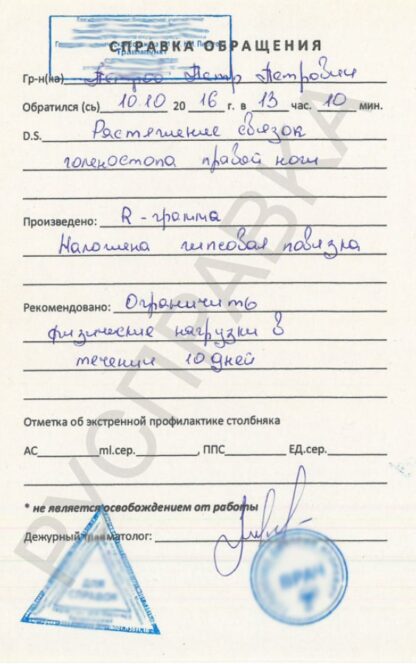 СПРАВКА ОБРАЩЕНИЯ
Гр-н(ка) Петров Петр Петрович
Обратился (сь) 10 10 20 16 г. в 13 час. 10 мин.
D.S. Растяжение связок
голеностопа правой ноги
Произведено: R-грамма
Наложена гипсовая повязка
Рекомендовано: Ограничить
физические нагрузки в
течении 10 дней
Отметка об экстренной профилактике столбняка
АС ml.сер. , ППС ЕД.сер.
* не является освобождением от работы
Дежурный травматолог:
ДЛЯ
СПРАВОК
ВРАЧ
РУСПРАВКА